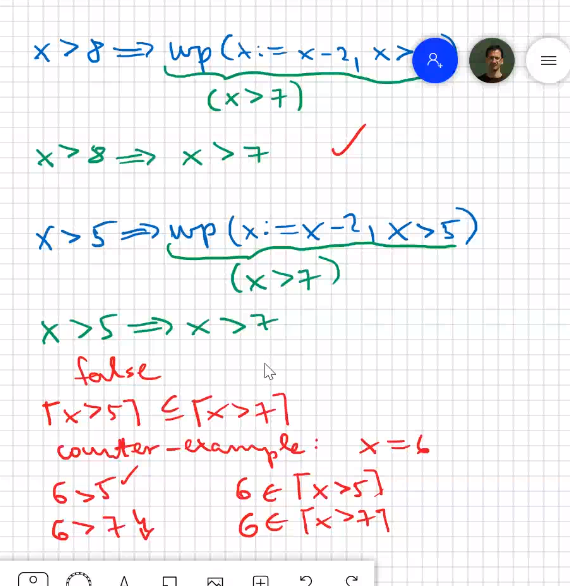 x > 8 ⟹ wp(x := x-2, x >
(x > 7)
x > 8 ⟹ x > 7 ✓
x > 5 ⟹ wp(x := x-2, x > 5)
(x > 7)
x > 5 ⟹ x > 7
false
⌈x > 5⌉ ⊆ ⌈x > 7⌉
counter-example: x = 6
6 > 5 ✓ 6 ∈ ⌈x > 5⌉
6 > 7 ↯ 6 ∈ ⌈x > 7⌉